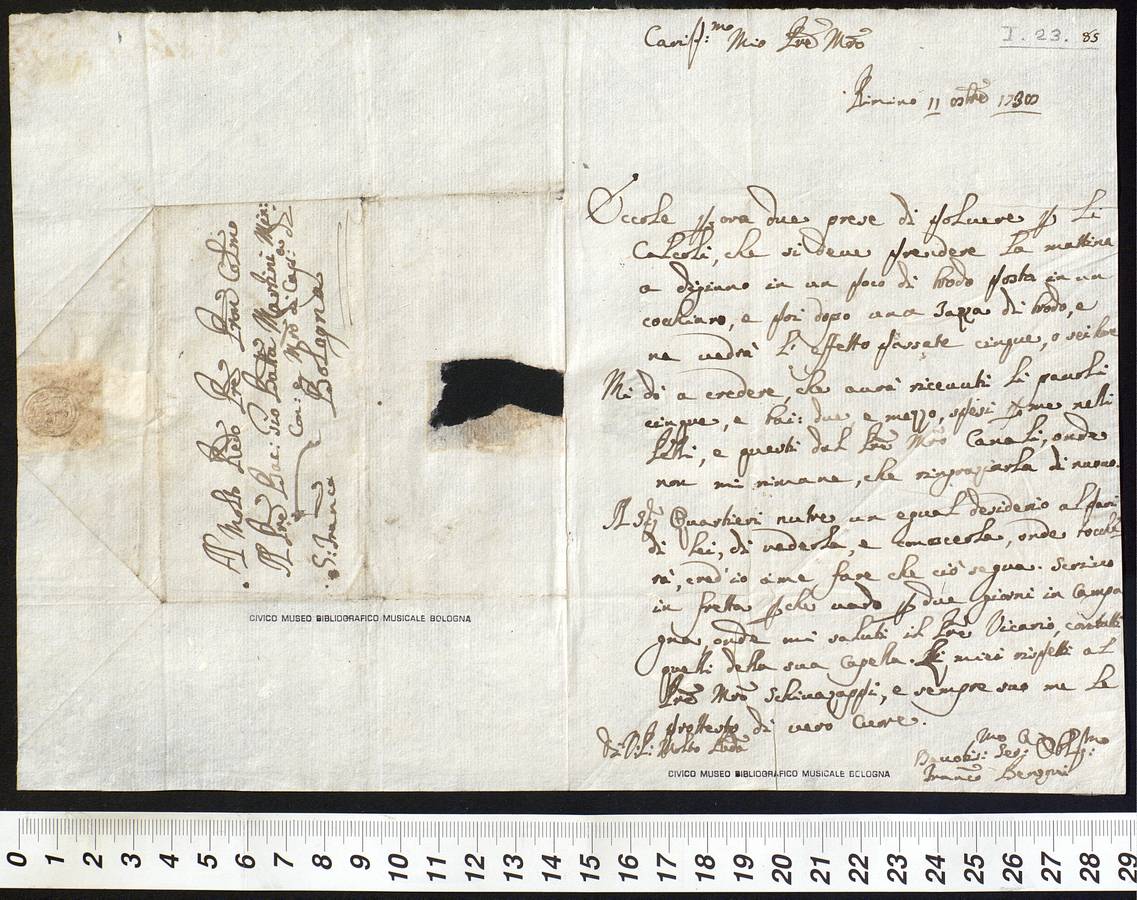 Al Molto Redo Pre Pron Colmo
Il Pre Bac: Gio Batta Martini Min:
Con: e Mro di Cap: di
S: Franco Bologna
CIVICO MUSEO BIBLIOGRAFICO MUSICALE BOLOGNA
I. 23. 85
Cariss:mo Mio Pre Mro
Rimino 11 8bre 1730
Eccole p ora due prese di polvere p li
Calcoli, che si deve prendere la mattina
a digiuno in un poco di brodo posta in un
cochiaro, e poi dopo una Tazza di brodo, e
ne vedrà l'effetto passate cinque, o sei hore
Mi dò a credere, che avrà ricevuti li pavoli
cinque, e bai: due, e mezzo, spesi p me nelli
e questi dal Pre Mro Canali, onde
non mi rimane, che ringraziarla di nuovo.
Il Sig Quartieri nutre un egual desiderio al pari
di lei, di vederla, e conoscerla, onde tocche
rà, cred'io à me fare che ciò segua. Scrivo
in fretta pche vado p due giorni in Campa
gna, onde mi saluti il Pre Vicario, con tutti
quelli della sua Capella. Li miei rispetti al
Pre Mro Schiavazappi, e sempre suo me le
protesto di vero Cuore.
Di V: P: Molto Reda
Devotis: Ser: Obblig:
Franco Benzoni
CIVICO MUSEO BIBLIOGRAFICO MUSICALE BOLOGNA
0 1 2 3 4 5 6 7 8 9 10 11 12 13 14 15 16 17 18 19 20 21 22 23 24 25 26 27 28 29